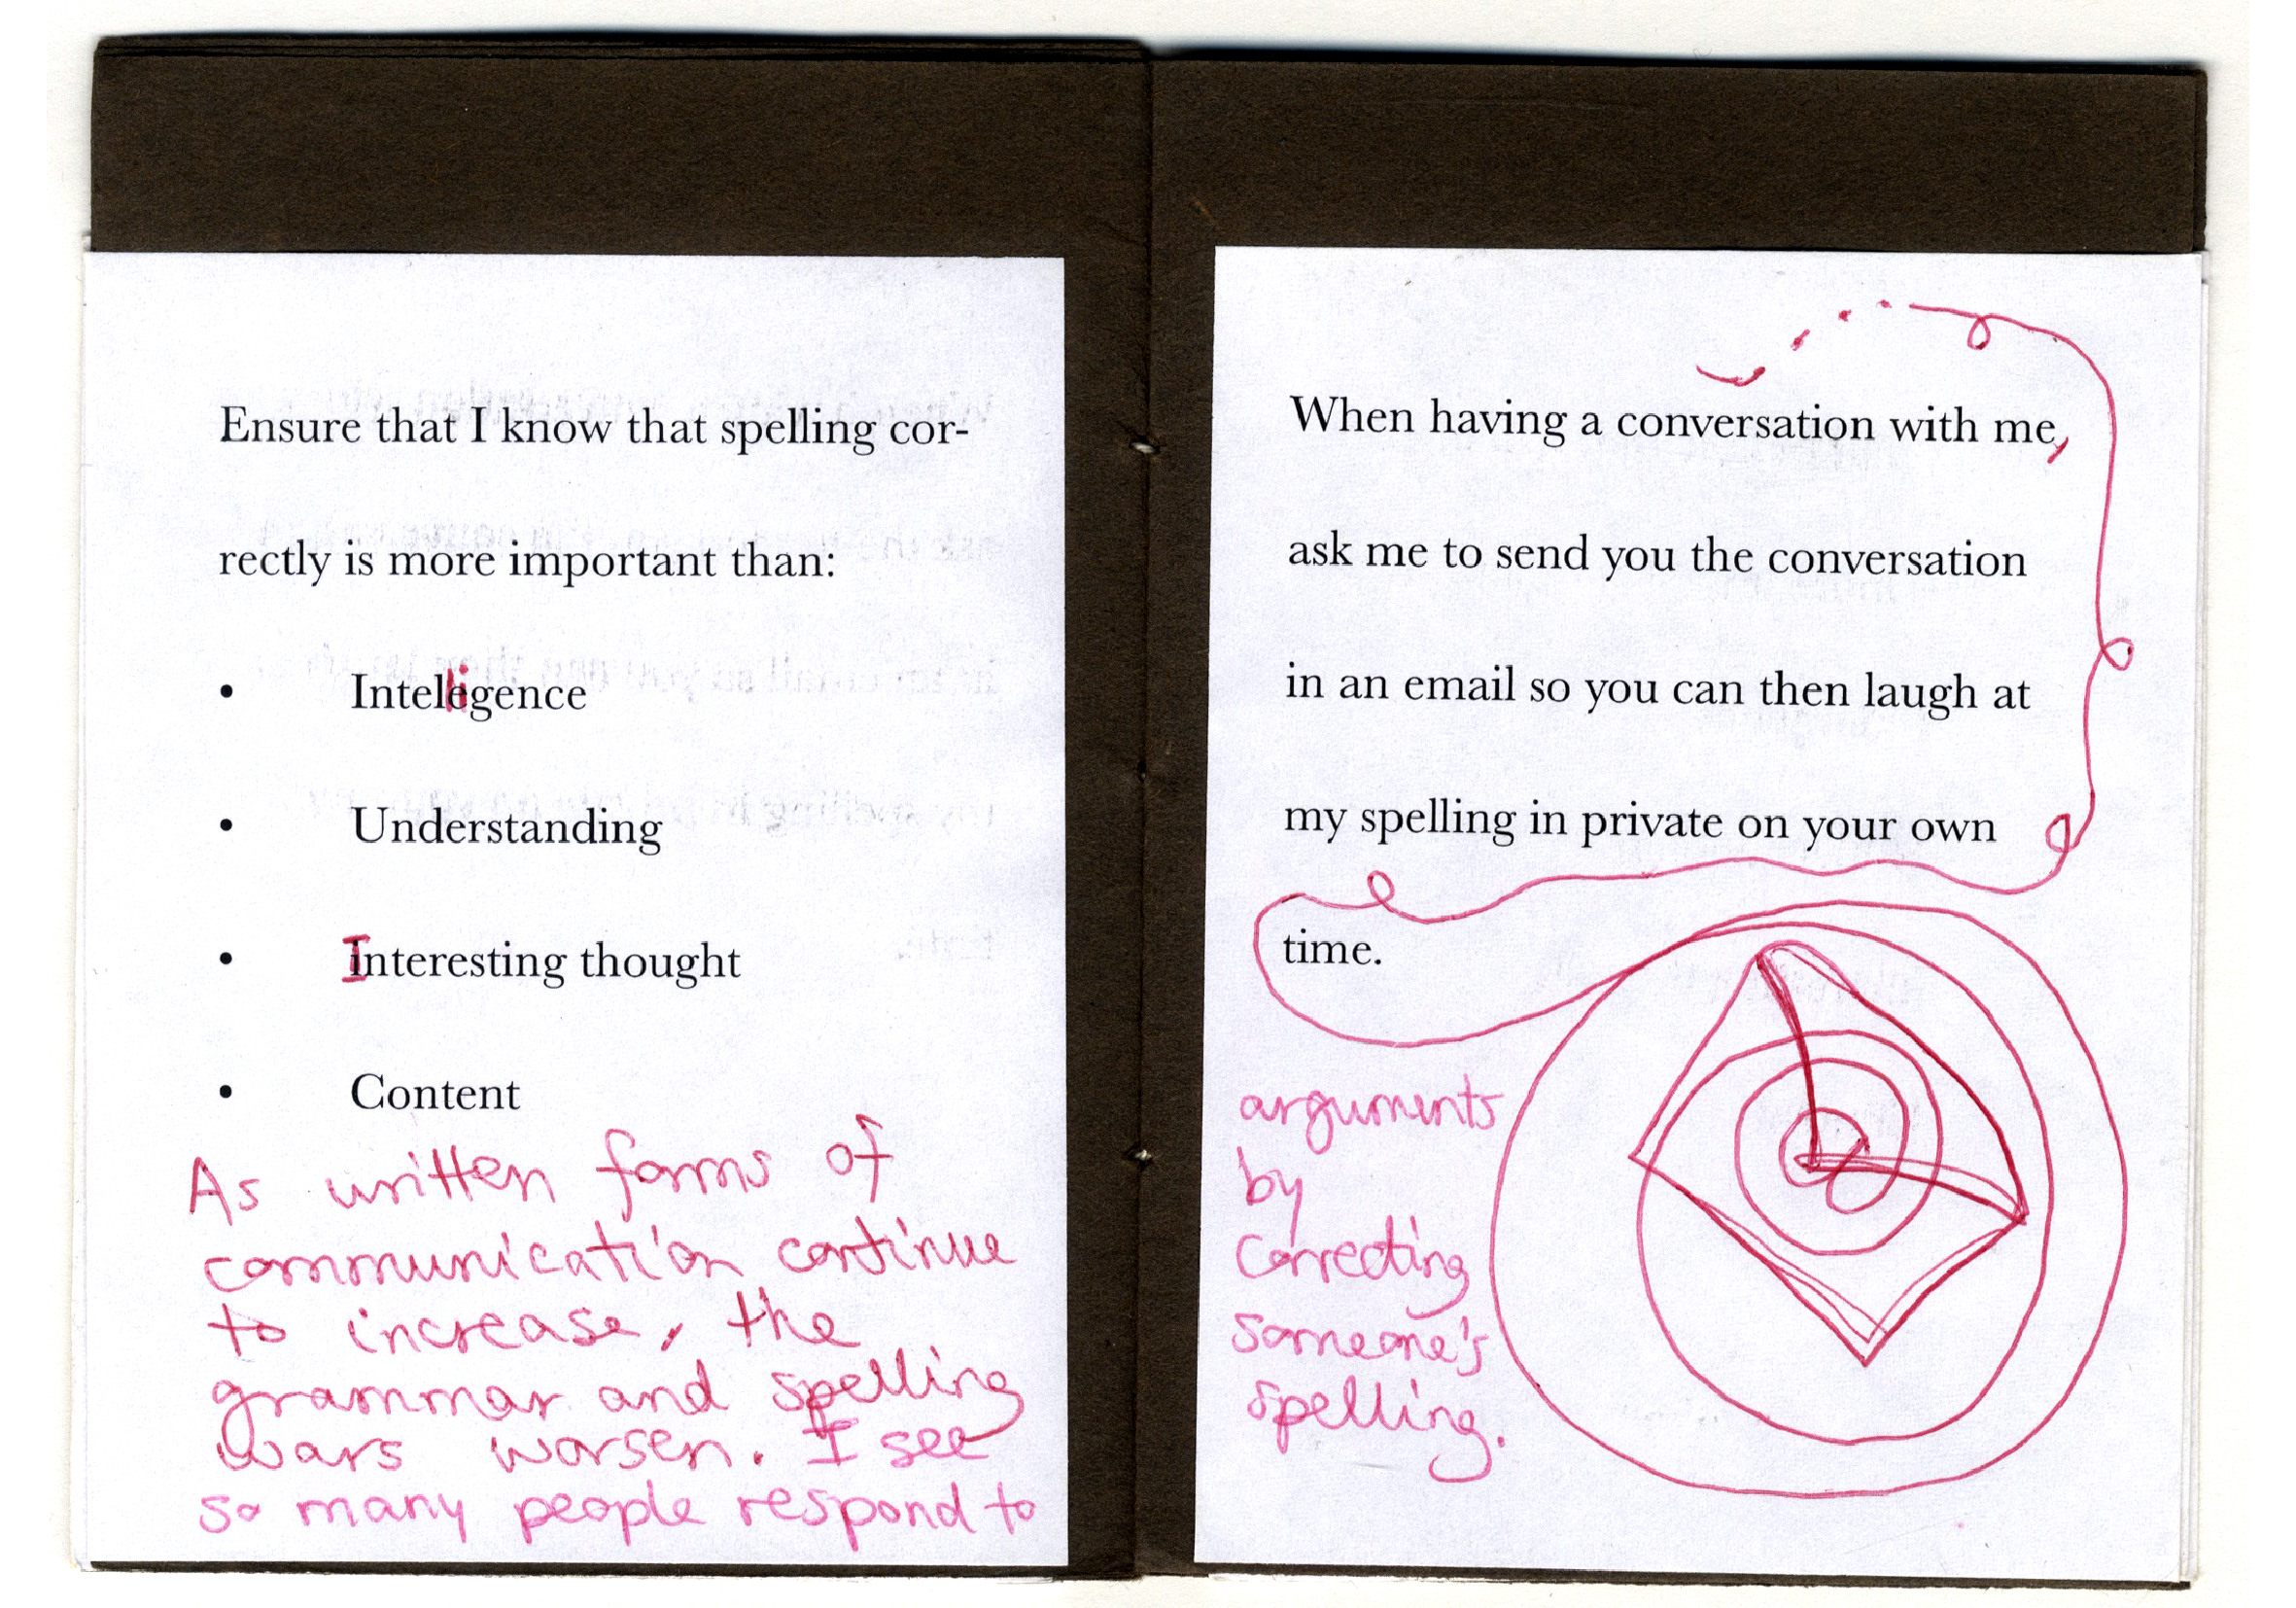 Ensure that I know that spelling cor-
rectly is more important than:
• Intelligence
• Understanding
• Interesting thought
• Content
As written forms of
communication continue
to increase, the
grammar and spelling
wars worsen. I see
so many people respond to
When having a conversation with me,
ask me to send you the conversation
in an email so you can then laugh at
my spelling in private on your own
time.
arguments
by
correcting
someone's
spelling.